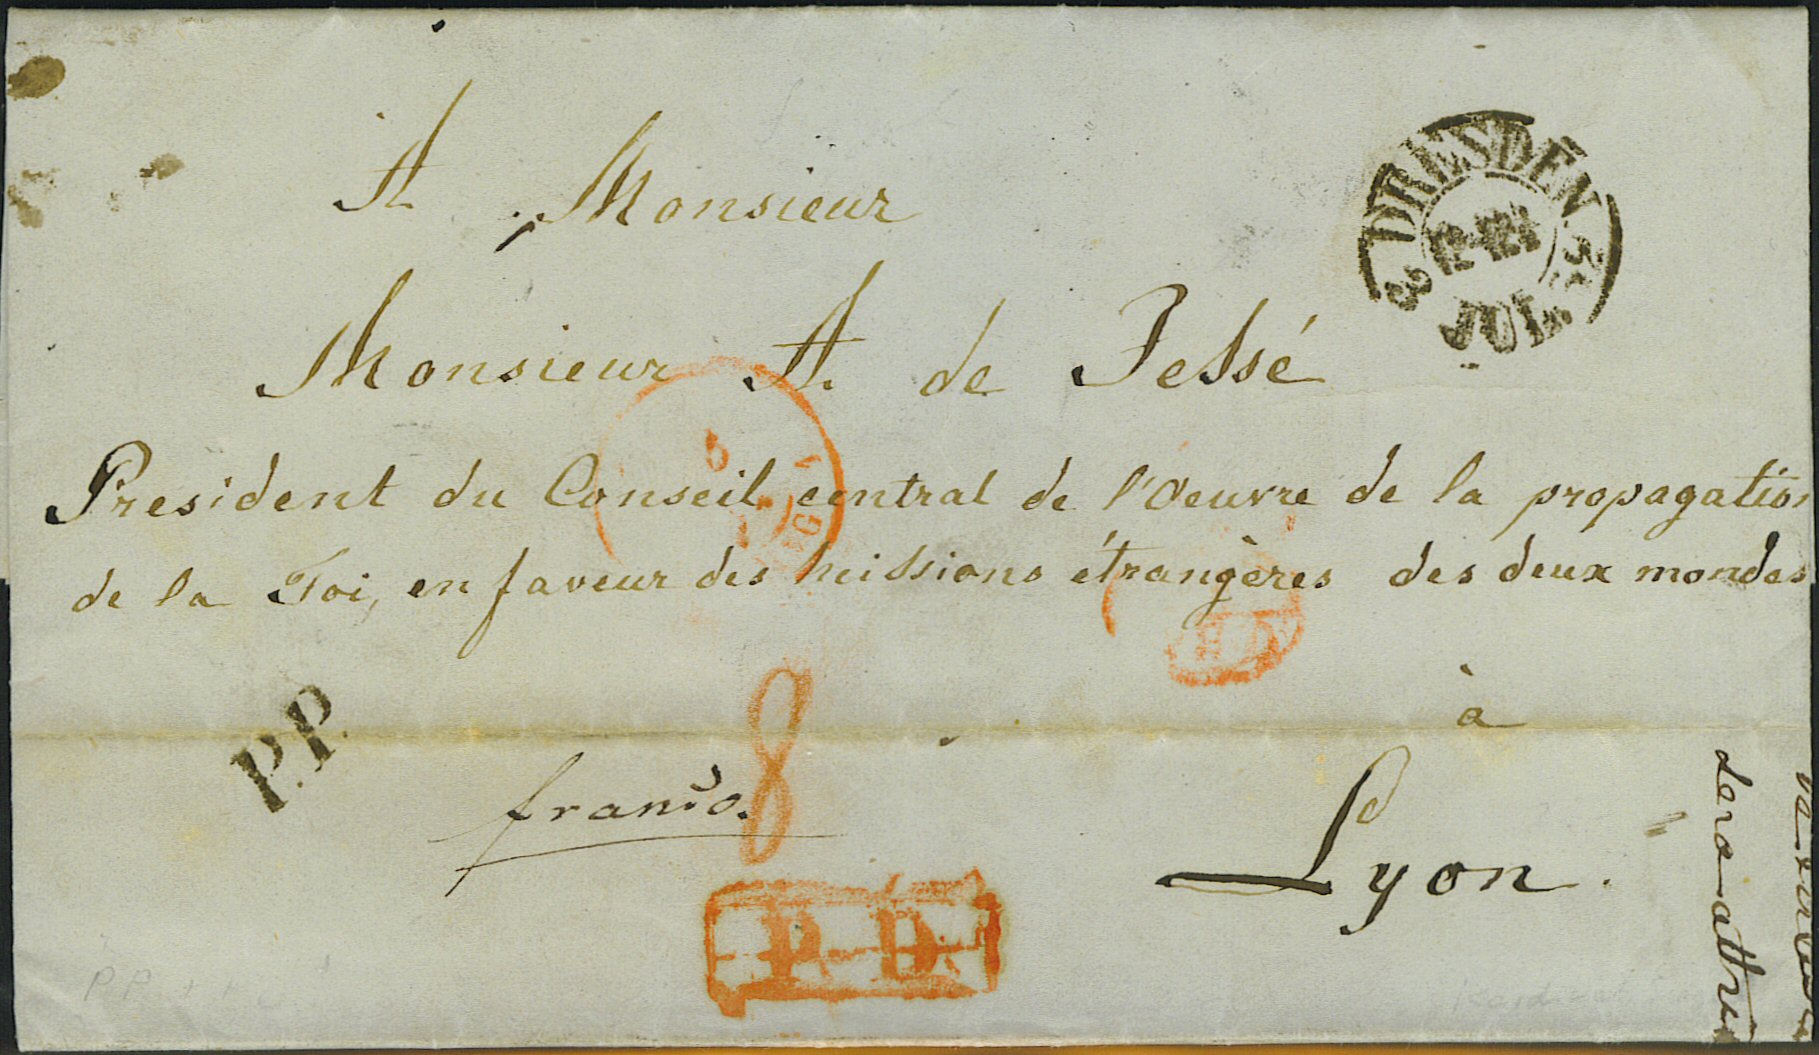 A Monsieur
Monsieur A. de Jessé
President du Conseil central de l'Oeuvre de la propagation
de la Foi, en faveur des missions étrangères des deux mondes
à
Lyon.
franco.
8
P.P.
P. D.
DRESDEN
3 JUL 51